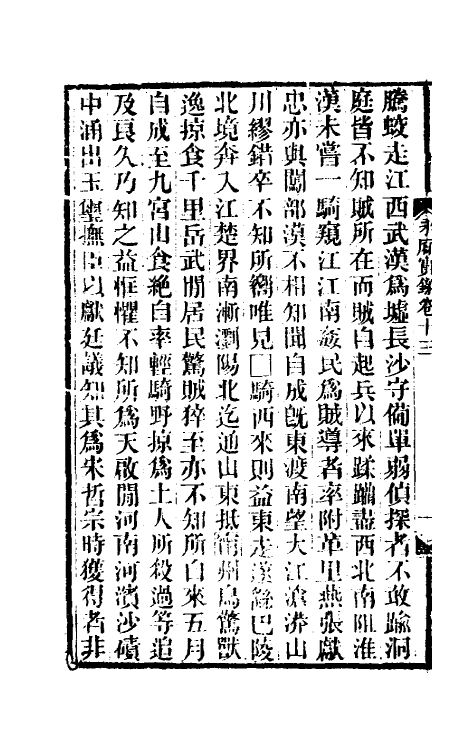 永曆實錄卷十三
一
騰蛟走江西武漢爲墟長沙守備單弱偵探者不敢踰洞
庭皆不知賊所在而賊自起兵以來蹂躪盡西北南阻淮
漢未嘗一騎窺江江南奸民爲賊導者率附革里燕張獻
忠亦與闖部漠不相知聞自成旣東渡南望大江滄漭山
川繆錯卒不知所嚮唯見□騎西來則益東走巴陵
北境奔入江楚界南漸瀏陽北迄通山東抵州鳥驚獸
逸掠食千里岳武閒居民驚賊猝至亦不知所自來五月
自成至九宮山食絕自率輕騎野掠爲土人所殺過等追
及良久乃知之益恇懼不知所爲天啟閒河南河濱沙磧
中涌出玉璽撫臣以獻廷議知其爲宋哲宗時獲得者非